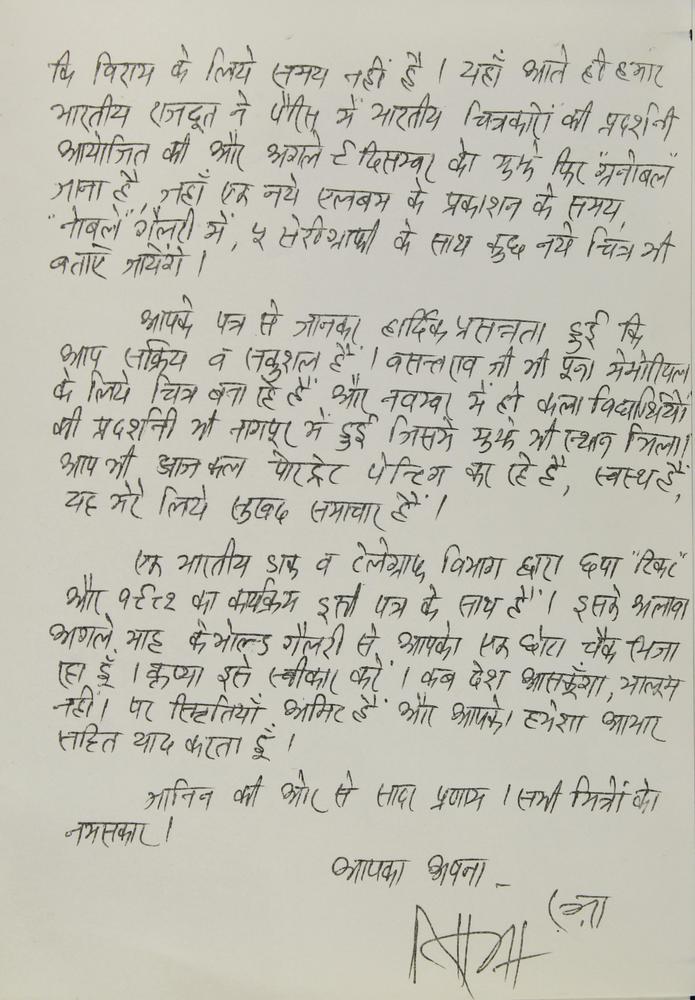 कि विराम के लिये समय नहीं है । यहाँ आते ही हमारे
भारतीय राजदूत ने पैरिस में भारतीय चित्रकारों की प्रदर्शनी
आयोजित की और अगले ९ दिसम्बर को मुझे फिर "ग्रनोबल"
जाना है, जहाँ एक नये एलबम के प्रकाशन के समय,
"नोबले" गैलरी में, ५ सेरीग्राफी के साथ कुछ नये चित्र भी
बताएँ जायेंगे ।
आपके पत्र से जानकर हार्दिक प्रसन्नता हुई कि
आप सक्रिय व सकुशल हैं । वसन्तराव जी भी पूना मेमोरीयल
के लिये चित्र बना रहे हैं और नवम्बर में ही कला विद्यार्थियों
की प्रदर्शनी भी नागपुर में हुई जिसमें मुझे भी स्थान मिला।
आप भी आज कल पोरट्रेट पेन्टिग कर रहे हैं, स्वस्थ हैं,
यह मेरे लिये सुखद समाचार हैं ।
एक भारतीय डाक व टेलेग्राफ विभाग द्वारा छपा "टिकट"
और १९८२ का कार्यक्रम इसी पत्र के साथ हैं । इसके अलावा
अगले माह केमोल्ड गैलरी से आपको एक छोटा चैक भिजा
रहा हूँ । कृप्या इसे स्वीकार करें । कब देश आसकूँगा, मालूम
नहीं। पर स्मितियाँ अमिट हैं और आपको हमेशा आभार
सहित याद करता हूँ ।
जानिन की ओर से सादर प्रणाम । सभी मित्रों को
नमस्कार ।
आपका अपना _
रज़ा